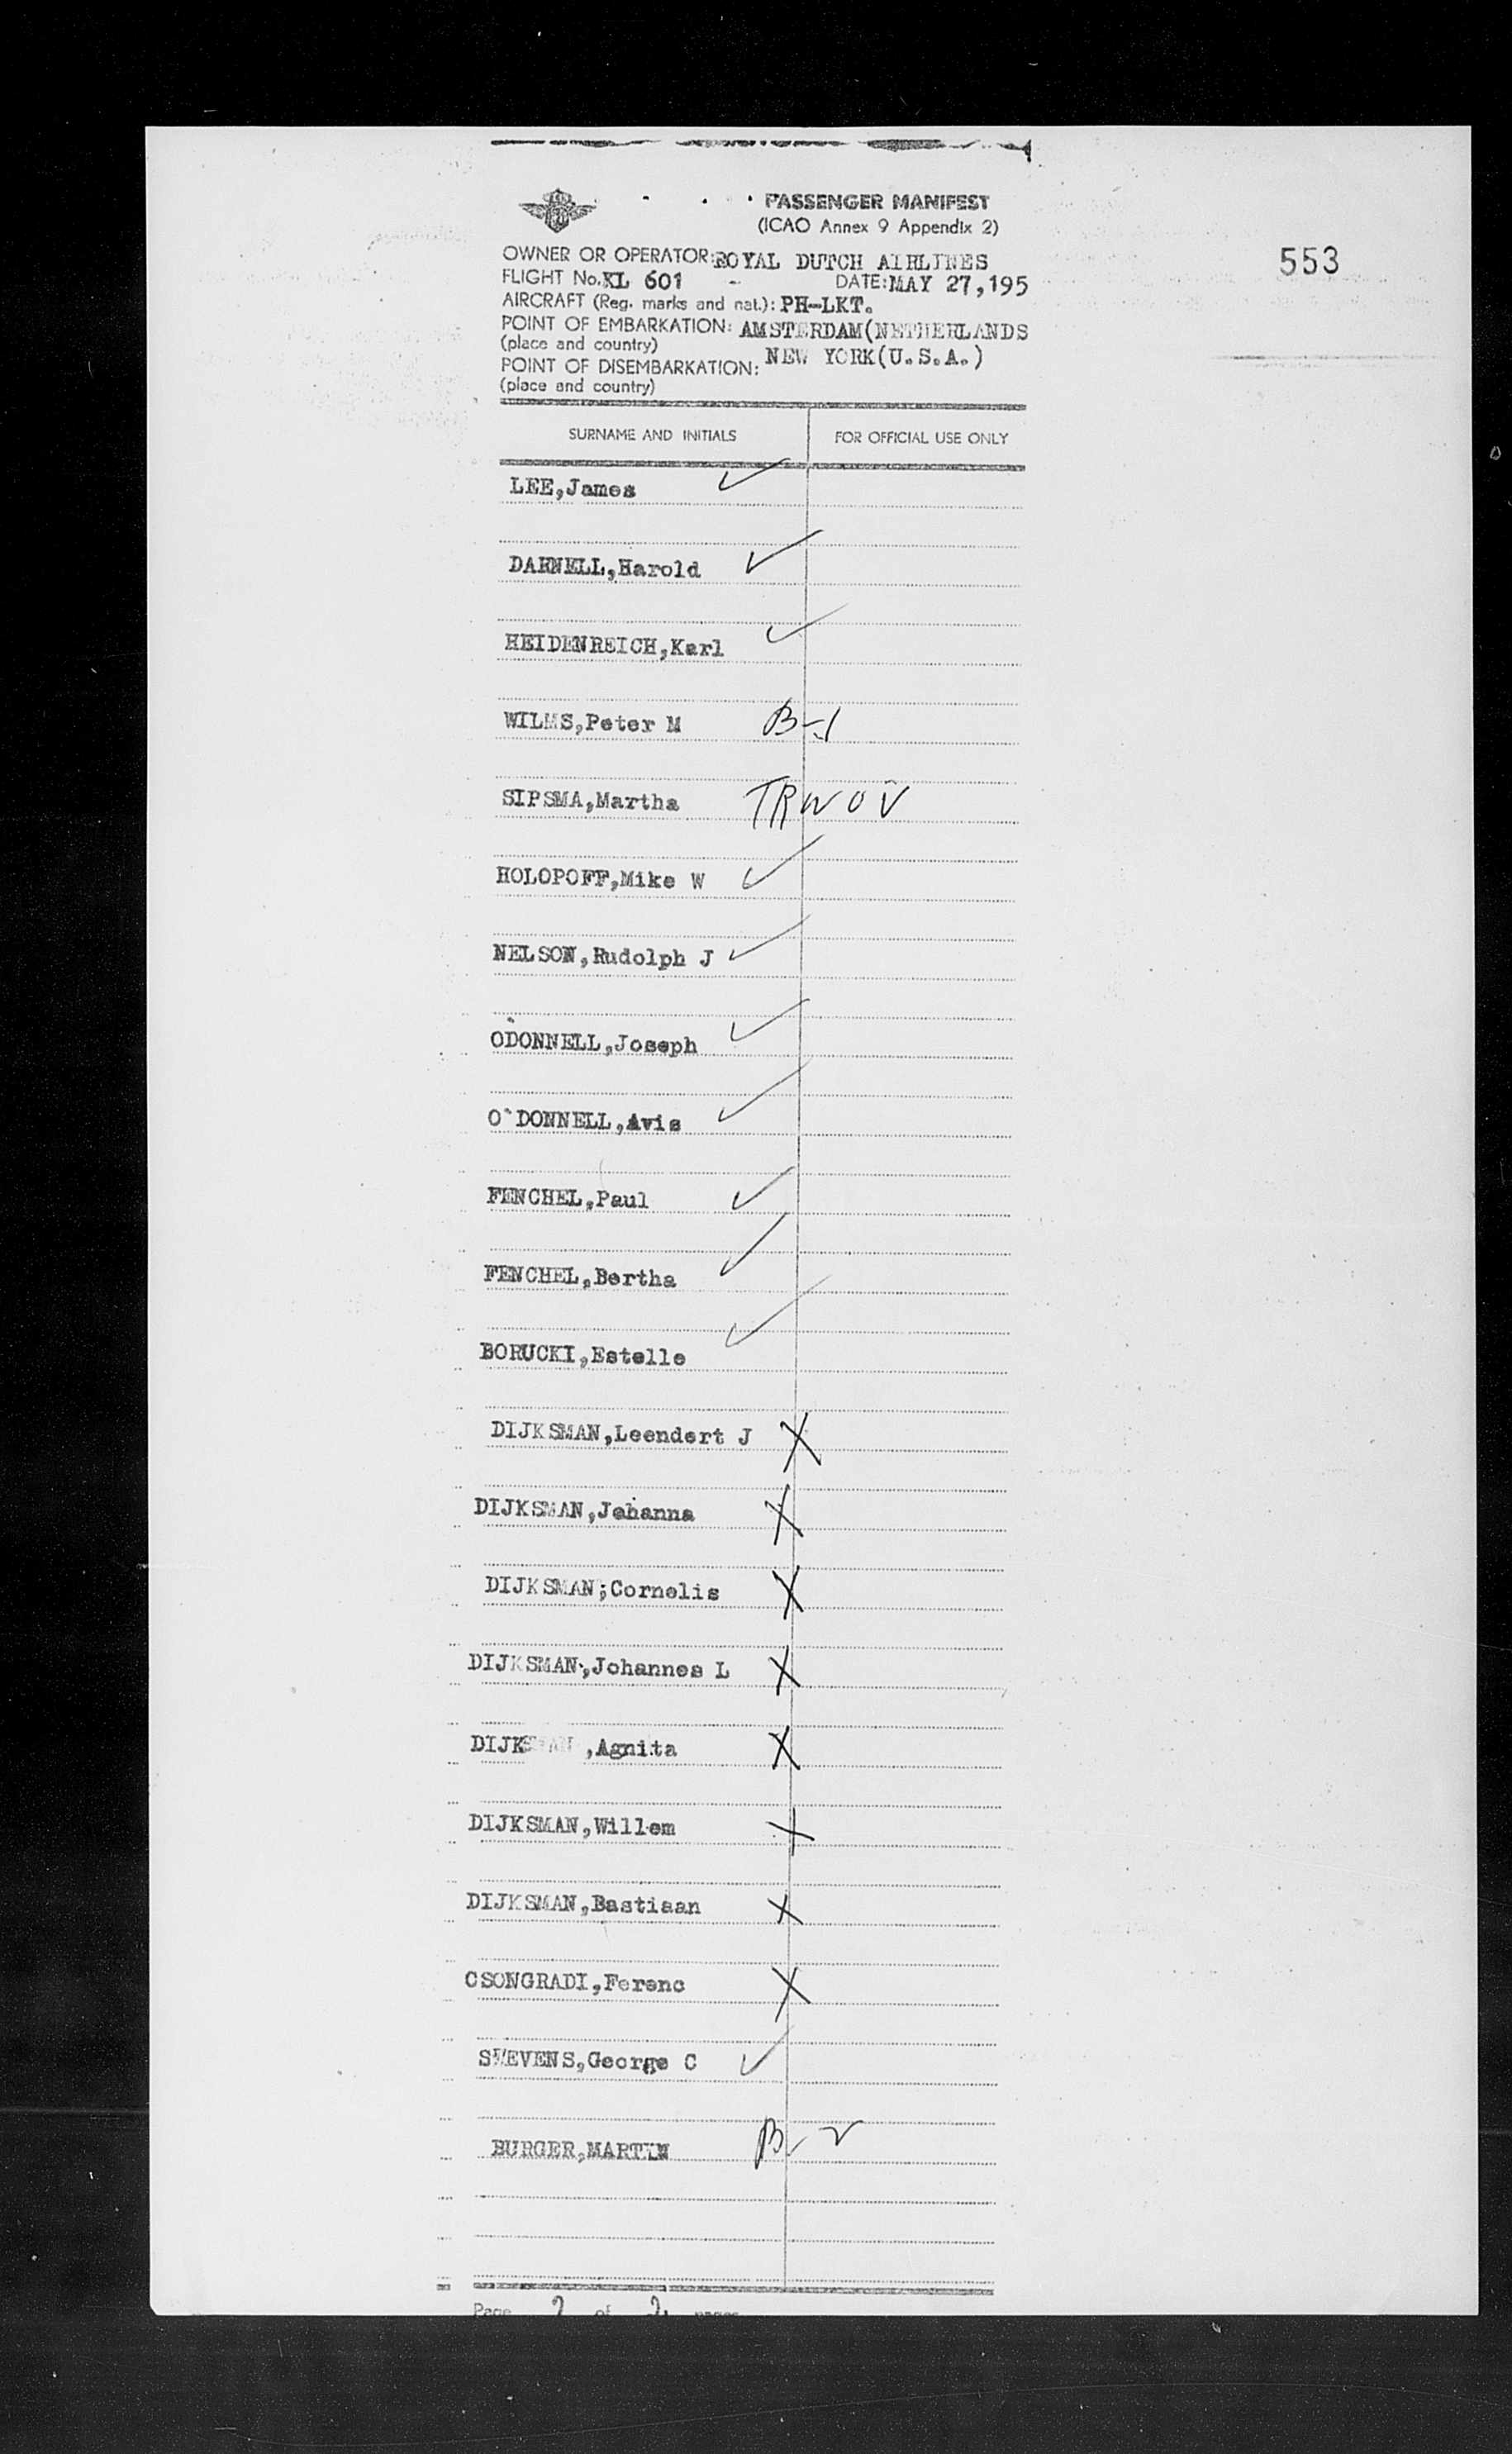 PASSENGER MANIFEST
(ICAO Annex 9 Appendix 2)
553
OWNER OR OPERATOR: ROYAL DUTCH AIRLINES
FLIGHT No. KL 601 - DATE: MAY 27, 195
AIRCRAFT (Reg. marks and nat.): PH-LKT.
POINT OF EMBARKATION: AMSTERDAM(NETHERLANDS
(place and country)
POINT OF DISEMBARKATION: NEW YORK(U.S.A.)
(place and country)
SURNAME AND INITIALS FOR OFFICIAL USE ONLY
LEE,James
DARNELL,Harold
HEIDENREICH,Karl
WILMS,Peter M B-1
SIPSMA,Martha TRWOV
HOLOPOFF,Mike W
NELSON,Rudolph J
O'DONNELL,Joseph
O'DONNELL,Avis
FENCHEL,Paul
FENCHEL,Bertha
BORUCKI,Estelle
DIJKSMAN,Leendert J X
DIJKSMAN,Johanna X
DIJKSMAN,Cornelis X
DIJKSMAN,Johannes L X
DIJKSMAN,Agnita X
DIJKSMAN,Willem X
DIJKSMAN,Bastiaan X
CSONGRADI,Ferenc X
STEVENS,George C
BURGER,MARTIN B-2
Page 2 of 2 pages